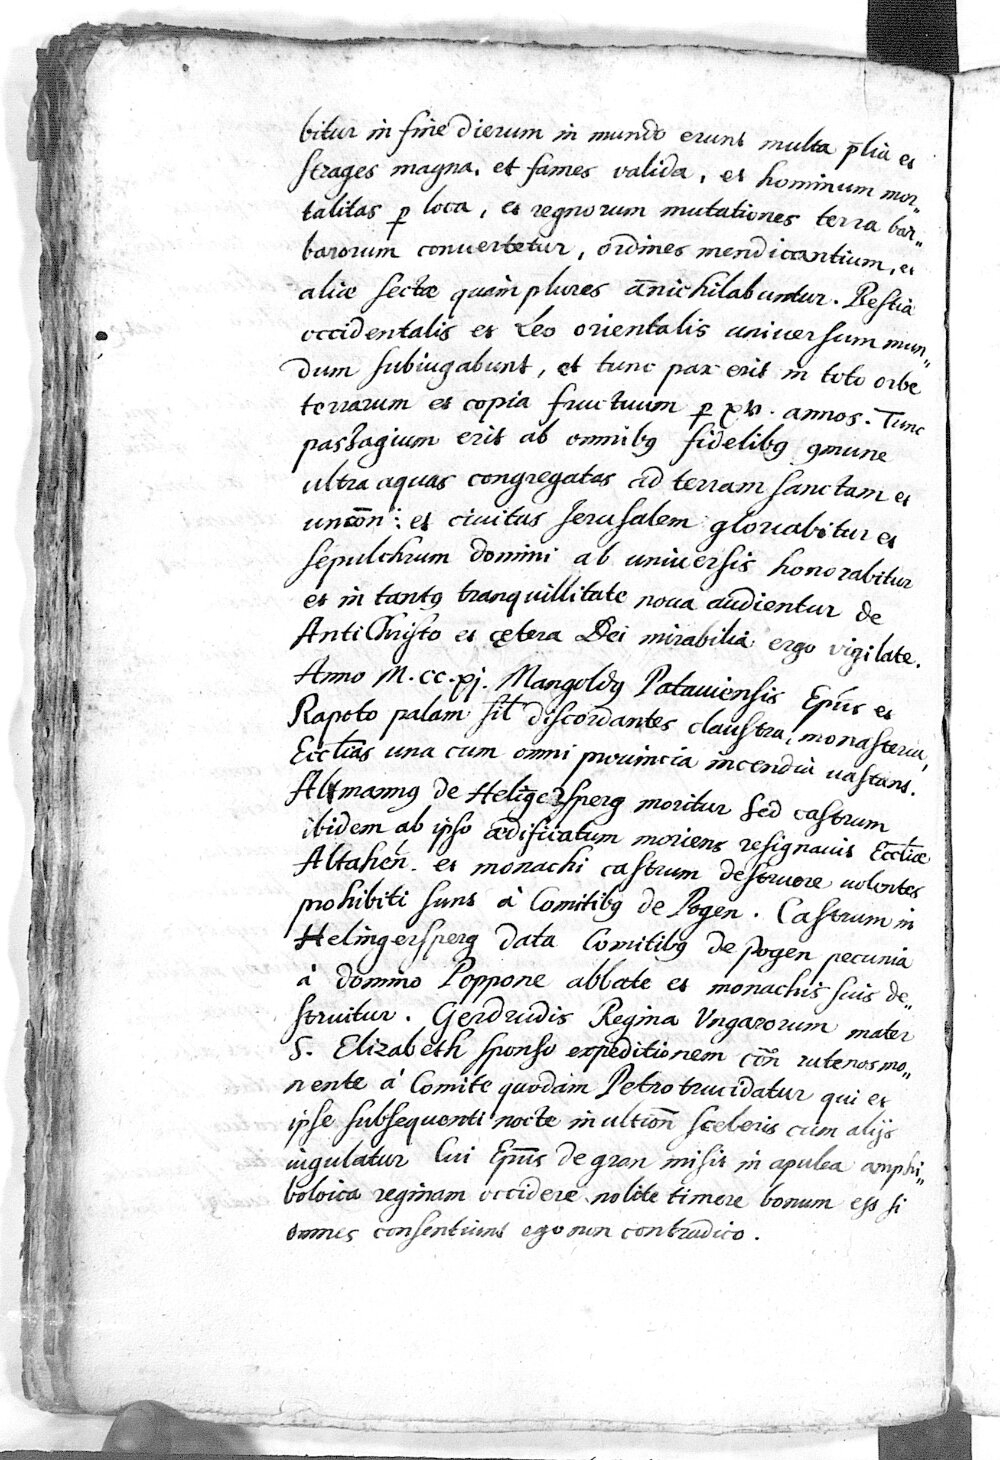 bitur in fine dierum in mundo erunt multa p̄lia et
strages magna, et fames valida, et hominum mor„
talitas p loca, et regnorum mutationes terra bar„
barorum convertetur, ordines mendicantium, et
aliæ sectæ quam plures añichilabuntur. Bestia
occidentalis et Leo orientalis universum mun„
dum subiugabunt, et tunc pax erit in toto orbe
terrarum et copia fructuum p xv. annos. Tunc
passagium erit ab omnibꝰ fidelibꝰ ꝯmune
ultra aquas congregatas ad terram sanctam et
et civitas Jerusalem gloriabitur et
sepulchrum domini ab universis honorabitur
et in tantꝰ tranquillitate nova audientur de
AntiChristo et cętera Dei mirabilia ergo vigilate.
Anno M.CC.xj. Mangoldꝰ Patauiensis Ep̄us et
Rapoto palam discordantes claustra, monasteria,
Eccl̄ias una cum omni provincia incendia vastans.
Altmannꝰ de Heligersperg moritur Sed castrum
ibidem ab ipso ædificatum moriens resignavit Eccl̄iæ
Altahen̄. et monachi castrum destruere volentes
prohibiti sunt à Comitibꝰ de Pogen. Castrum in
Helingersperg data Comitibꝰ de pogen pecunia
à domino Poppone abbate et monachis suis de„
struitur. Gerdrudis Regina Vngarorum mater
S. Elizabeth sponso expeditionem cōn rutenos mo„
nente à Comite quodam Petro trucidatur qui et
ipse subsequenti nocte in ultion̄ sceleris cum alijs
iugulatur Cui Ep̄us de gran misit in apulea amphi„
boloica reginam occidere nolite timere bonum est si
omnes consentiunt ego non contradico.